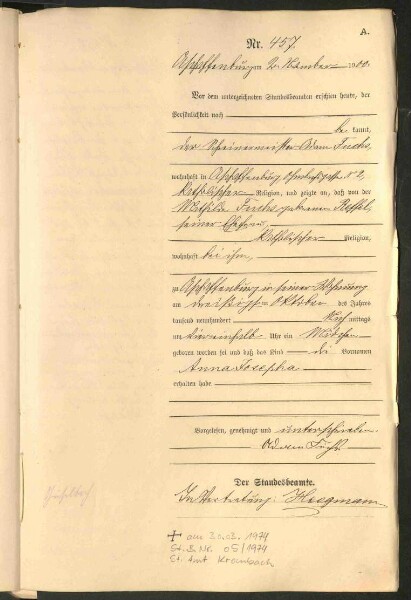 A.
Nr. 457.
Aschaffenburg am 2. November 1900.
Vor dem unterzeichneten Standesbeamten erschien heute, der
Persönlichkeit nach
be kannt,
der Schreinermeister Adam Fuchs,
wohnhaft in Aschaffenburg
katholischer Religion, und zeigte an, daß von der
Mathilde Fuchs, geborenen
seiner Ehefrau,
katholischer Religion,
wohnhaft bei ihm,
zu Aschaffenburg in seiner Wohnung
am dreißigsten Oktober des Jahres
tausend neunhundert Nach mittags
um Uhr ein Mädchen
geboren worden sei und daß das Kind die Vornamen
Anna Josepha
erhalten habe
Vorgelesen, genehmigt und unterschrieben
Adam Fuchs
Der Standesbeamte.
In Vertretung:
✝ am 30.03. 1974
St. B. Nr. 05/1974
St. Amt Krombach